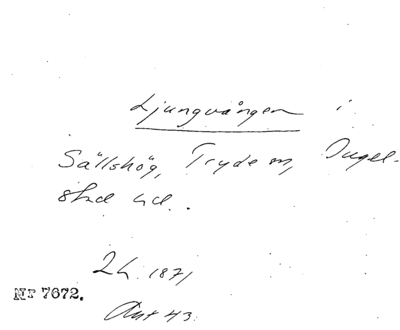 Ljungvången i
Sällshög, Tryde sn, Ingel-
stad hd.
2h. 1871
Nr 7672.
Ant 43.